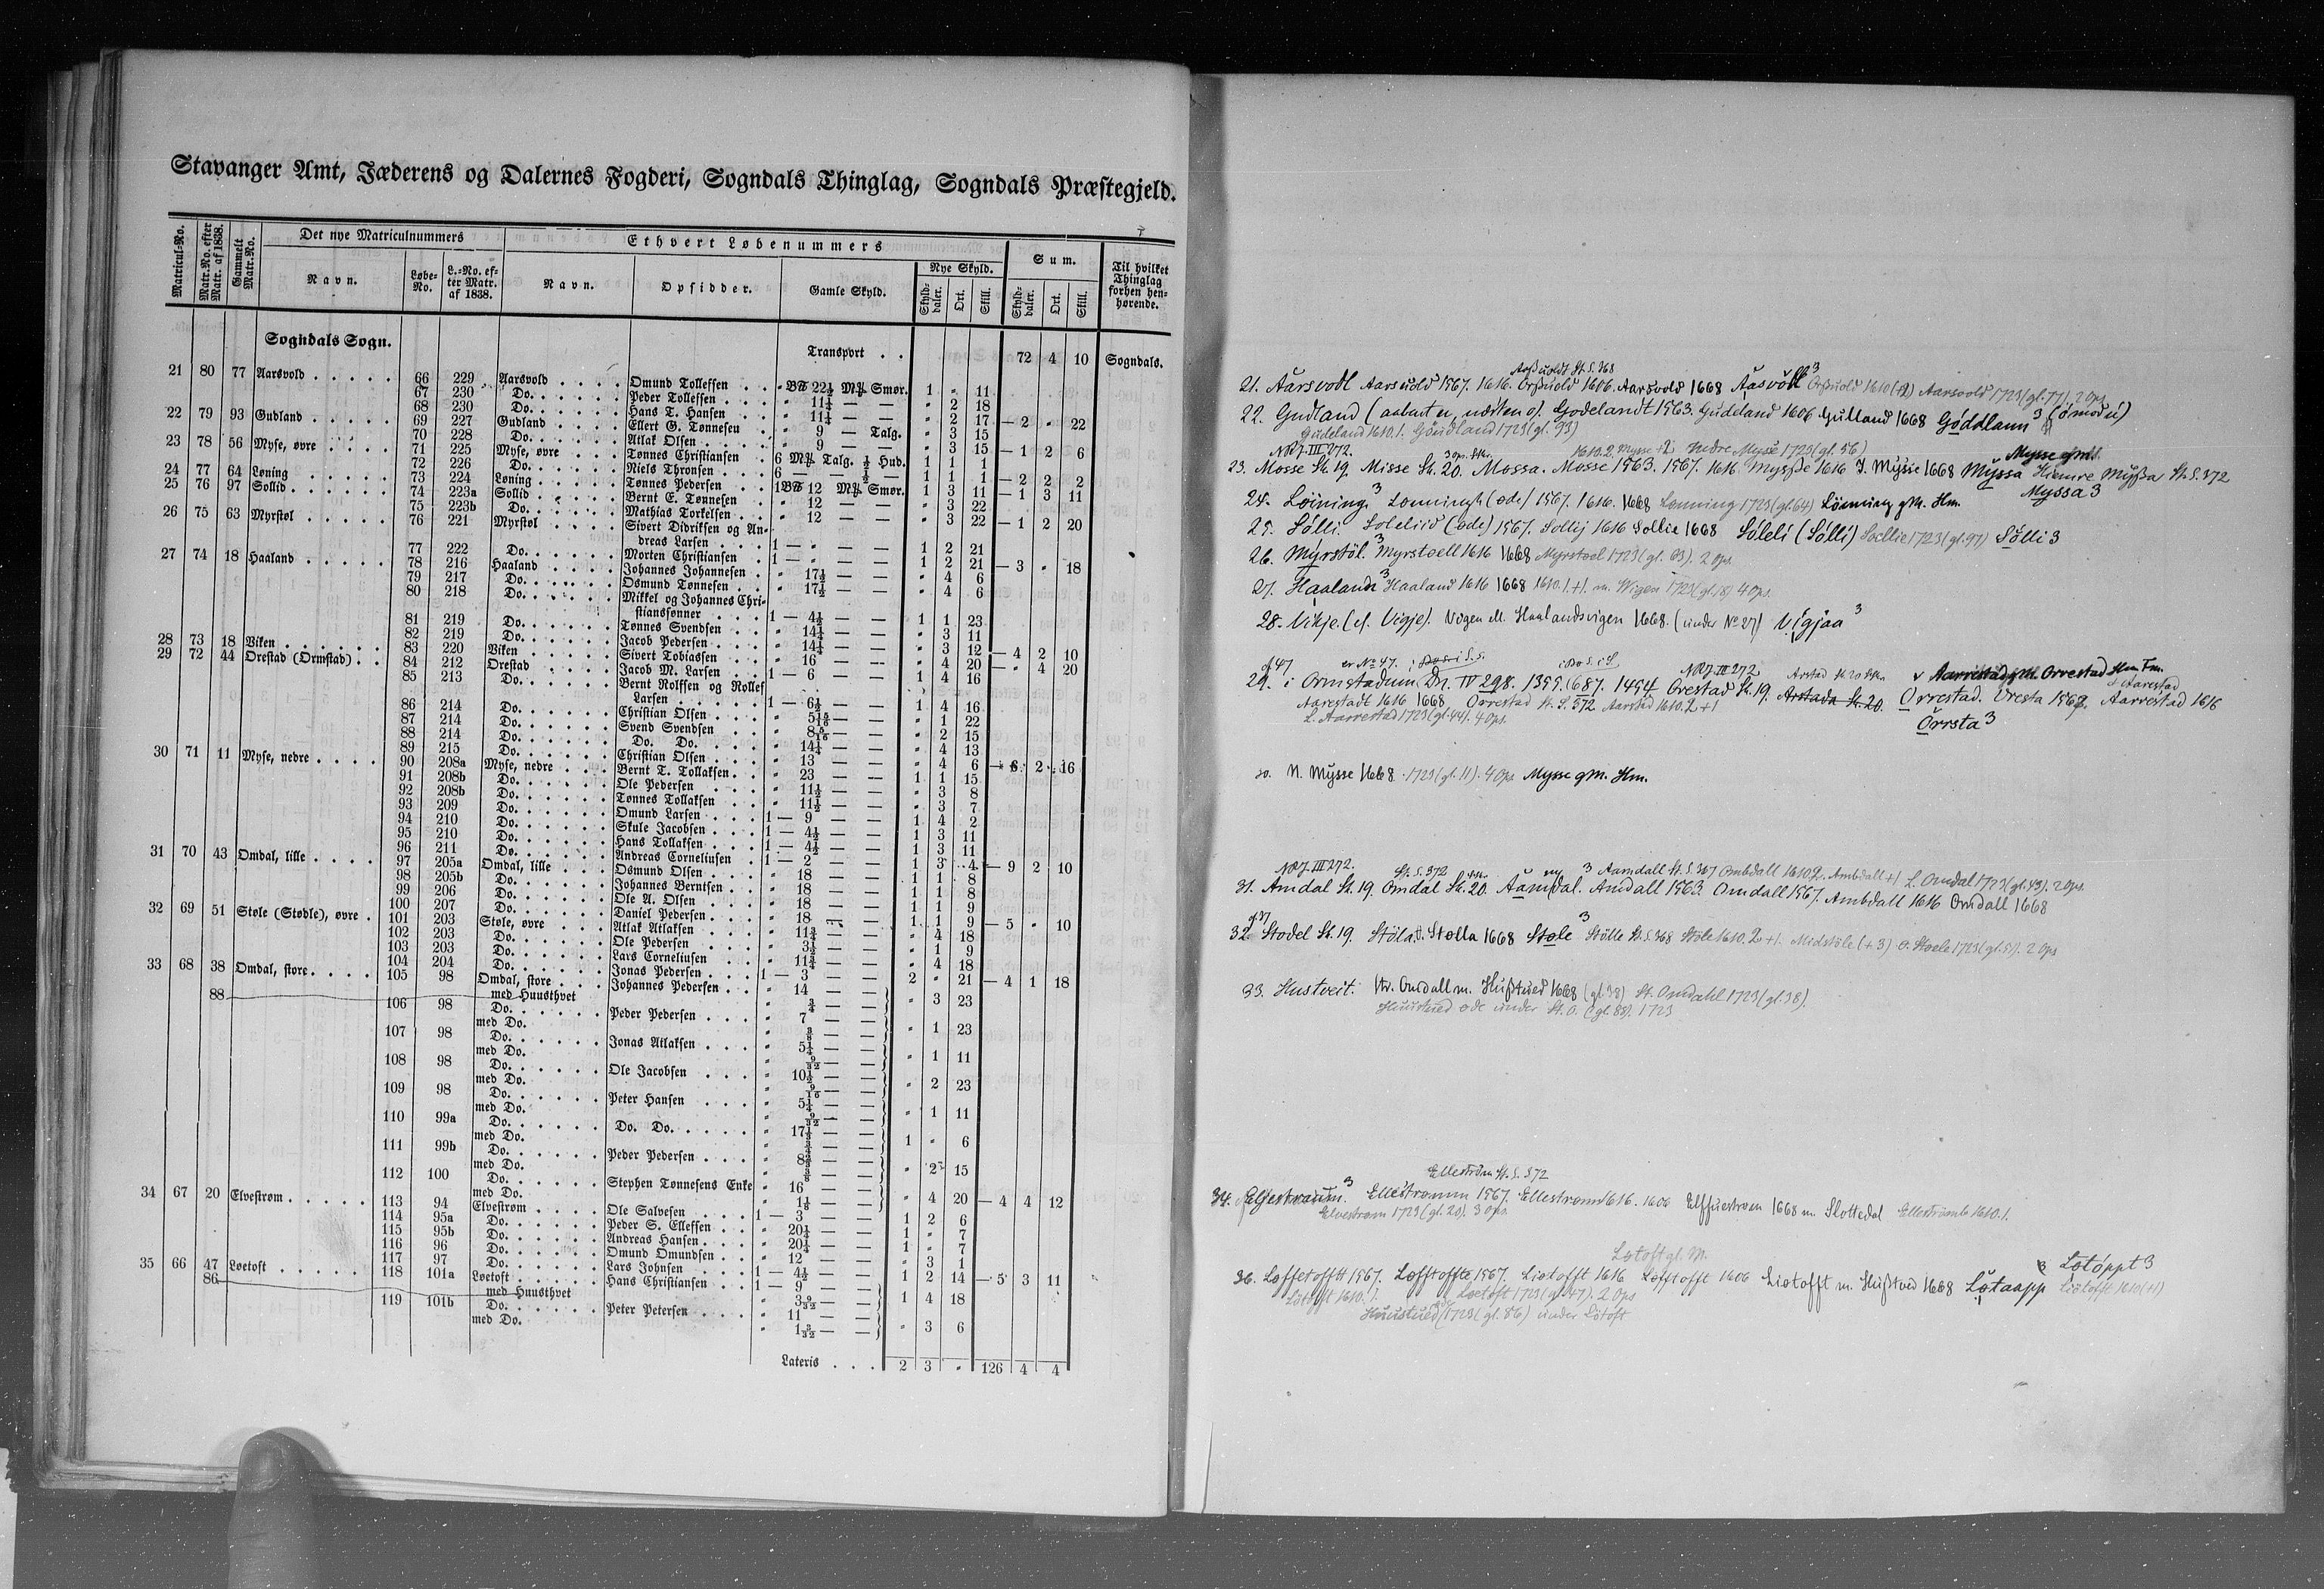 Stavanger Amt, Jæderens og Dalernes Fogderi, Sogndals Thinglag, Sogndals Præstegjeld.
Matricul-No. Matr.No. efter Matr. af 1838. Gammelt Matr.-No. Det nye Matriculnummers Ethvert Løbenummers Sum. Til hvilket Thinglag forhen henhørende.
Navn. Løbe-No. L.-No. efter Matr. af 1838. Navn. Opsidder. Gamle Skyld. Nye Skyld. Skylddaler. Ort. Skill. Skylddaler. Ort. Skill.
Sogndals Sogn. Transport . . 72 4 10 Sogndals.
21 80 77 Aarsvold 66 229 Aarsvold Omund Tollefsen " B℔ 22½ Mk Smør. 1 " 11
67 230 Do. Peder Tollefsen " 11¼ — — " 2 18
68 230 Do. Hans T. Hansen " 11¼ — — " 2 17 — 2 " 22
22 79 93 Gudland 69 227 Gudland Ellert G. Tønnesen " 9 — Talg. " 3 15
70 228 Do. Atlak Olsen " 9 — — " 3 15 — 1 2 6
23 78 56 Myse, øvre 71 225 Myse, øvre Tønnes Christiansen 6 Mk Talg. ½ Hud. 1 1 1
72 226 Do. Niels Thronsen 6 — — ½ — 1 1 1 — 2 2 2
24 77 64 Løning 73 224 Løning Tønnes Pedersen 1 B℔ 12 Mk Smør. 1 3 11 — 1 3 11
25 76 97 Sollid 74 223a Sollid Bernt E. Tønnesen " 12 — — " 3 22
75 223b Do. Mathias Torkelsen " 12 — — " 3 22 — 1 2 20
26 75 63 Myrstøl 76 221 Myrstøl Sivert Didriksen og Andreas Larsen 1 — " — — 1 2 21
77 222 Do. Morten Christiansen 1 — " — — 1 2 21 — 3 " 18
27 74 18 Haaland 78 216 Haaland Johannes Johannesen " 17½ — — " 4 6
79 217 Do. Osmund Tønnesen " 17½ — — " 4 6
80 218 Do. Mikkel og Johannes Christianssønner 1 — 4½ — — 1 1 23
81 219 Do. Tønnes Svendsen " 14¼ — — " 3 11
82 219 Do. Jacob Pedersen " 14¼ — — " 3 12 — 4 2 10
28 73 18 Viken 83 220 Viken Sivert Tobiassen " 16 — — " 4 20 — " 4 20
29 72 44 Orestad (Ormstad) 84 212 Orestad Jacob M. Larsen 1 — 6 — — 1 4 16
85 213 Do. Bernt Rolfsen og Rollef Larsen 1 — 6½ — — 1 4 16
86 214 Do. Christian Olsen " — — " 1 22
87 214 Do. Svend Svendsen " — — " 2 15
88 214 Do. Do. Do. " 14¼ — — " 4 13
89 215 Do. Christian Olsen " 13 — — " 4 6 — 2 16
30 71 11 Myse, nedre 90 208a Myse, nedre Bernt T. Tollaksen " 23 — — 1 1 15
91 208b Do. Ole Pedersen " 11½ — — " 3 8
92 208b Do. Tønnes Tollaksen " 11½ — — " 3 7
93 209 Do. Omund Larsen 1 — 9 — — 1 4 2
94 210 Do. Skule Jacobsen 1 — 4½ — — 1 3 11
95 210 Do. Hans Tollaksen 1 — 4½ — — 1 3 11
96 211 Do. Andreas Corneliusen 1 — 2 — — 1 3 4 — 9 2 10
31 70 43 Omdal, lille 97 205a Omdal, lille Osmund Olsen " 18 — — 1 1 8
98 205b Do. Johannes Berntsen " 18 — — 1 1 8
99 206 Do. Ole A. Olsen " 18 — — 1 1 9
100 207 Do. Daniel Pedersen " 18 — — 1 1 9 — 5 " 10
32 69 51 Støle (Stødle), øvre 101 203 Støle, øvre Atlak Atlaksen " 11¾ — — " 4 18
102 203 Do. Ole Pedersen " 3½ — — " 1 9
103 203 Do. Lars Corneliusen " 11¾ — — " 4 18
104 204 Do. Jonas Pedersen 1 — 3 — — 2 " 21 — 4 1 18
33 68 38 Omdal, store 105 98 Omdal, store Johannes Pedersen " 14 — —
88 med Huusthvet " ¾ — — " 3 23
106 98 Do. Peder Pedersen " 7 — —
med Do. " ⅜ — — " 1 23
107 98 Do. Jonas Atlaksen " 5¼ — —
med Do. " 9/32 — — " 1 11
108 98 Do. Ole Jacobsen " 10½ — —
med Do. " 9/16 — — " 2 23
109 98 Do. Peter Hansen " 5¼ — —
med Do. " 9/32 — — " 1 11
110 99a Do. Do. Do. " — —
med Do. " ¾ — — 1 " 6
111 99b Do. Peder Pedersen " — —
med Do. " ⅜ — — " 2 15
112 100 Do. Stephen Tønnesens Enke " 16 — —
med Do. " 1⅛ — — " 4 20 — 4 4 12
34 67 20 Elvestrøm 113 94 Elvestrøm Ole Salvesen 1 — 3 — — 1 2 6
114 95a Do. Peder S. Ellefsen " 20¼ — — 1 " 7
115 95b Do. Andreas Hansen " 20¼ — — 1 " 7
116 96 Do. Omund Omundsen " 12 — — " 3 1
117 97 Do. Lars Johnsen 1 — 4½ — — 1 2 14 — 5 3 11
35 66 47 Løetoft 118 101a Løetoft Hans Christiansen 1 — 9 — —
86 med Huusthvet " 3 9/32 — — 1 4 18
119 101b Do. Peter Petersen " 11 — —
med Do. " 1 3/32 — — " 3 6
Lateris . . . 2 3 " 126 4 4
Aarsuoldt St. S. 368
21. Aarsvodl Aarsuold 1567. 1616. Orsuold 1606. Aarsvold 1668 Åasvödl 3 Orsuold 1610 (+2) Aarsvold 1723 (gl. 77). 2 Ops.
22. Gudland (aabent u, næsten o). Godelandt 1563. Gudeland 1606 Gulland 1668 Góddlann 3 (ó mod ú)
Gudeland 1610.1. Goudland 1723 (gl. 93)
NRJ. III 272. 1610.2. Mysse Indre Myse 1723 (gl. 56) Mysse gmt.
23. Mosse Sk. 19. Misse Sk. 20. Mossa. Mosse 1563. 1567. 1616 Mysse 1616 J. Mysse 1668 Myssa Hiemre Myssa St. S. 372
Myssa 3
24. Løining 3 Lonningh (øde) 1567. 1616. 1668 Lønning 1723 (gl. 64) Lönning gM. Hm.
25. Sólli. Soleliid (øde) 1567. Sollij 1616 Sollie 1668 Sóleli (Sólli) Soellie 1723 (gl. 97) Sólli 3
26. Myrstöl. 3 Myrstoell 1616 1668 Myrstoel 1723 (gl. 63). 2 Ops.
27. Haaland 3 Haaland 1616 1668 1610.1.+1. m. Wigen 1723 (gl. 18) 4 Ops.
28. Vikje. (cf. Vigje). Vigen ell. Haalandsvigen 1668. (under No 27) Vigjaa 3
cf 47 er No 47. NRJ. III 272 Aarrestad gM. Orrestad Hm. Fm.
29. i Ormstadum Dn. IV 298. 1355. (687. 1454 Orestad Sk. 19. Arstada Sk. 20. Orrestad. Oresta 1563. Aarrestad 1616
Aarestadt 1616 1668 Orrestad St. S. 372 Aarstad 1610.2+1 Örrsta 3
L. Aarrestad 1723 (gl. 44). 4 Ops.
30. N. Mysse 1668. 1723 (gl. 11). 4 Ops. Mysse gM. Hm.
NRJ. III 272. St. S. 372 Aamdall St. S. 367 Ombdall 1610.2. Ambdall +1 L. Omdal 1723 (gl. 43). 2 Ops.
31. Amdal Sk. 19 Omdal Sk. 20. Åamdal. Amdall 1563. Omdall 1567. Ambdall 1616 Omdall 1668
32. Stodel Sk. 19. Stöla. Stølla 1668 Støle 3 Stölle St. S. 368 Støle 1610.2+1. Midstöle (+3) O. Støele 1723 (gl. 51). 2 Ops
33. Hustveit. Str. Omdall m. Hustued 1668 (gl. 38) St. Omdahl 1723 (gl. 38).
Huustued øde under St. O. (gl. 88). 1723
Ellestrøm St. S. 372
34. Eljestraum. 3 Ellestromm 1567. Ellestrom 1616. 1606 Elffuestrøm 1668 m. Slottedal Ellestrømb 1610.1.
Elvestrøm 1723 (gl. 20). 3 Ops.
Løtoft gl. M. Løtóppt 3
36. Løffetofft 1567. Løfftoffte 1567. Liøtofft 1616 Løfftofft 1606 Liøtofft m. Hustved 1668 Løtaapp Liötofft 1610 (+1)
Lötofft 1610.1. Løetoft 1723 (gl. 47). 2 Ops
Huustued (1723 (gl. 86) under Lötoft